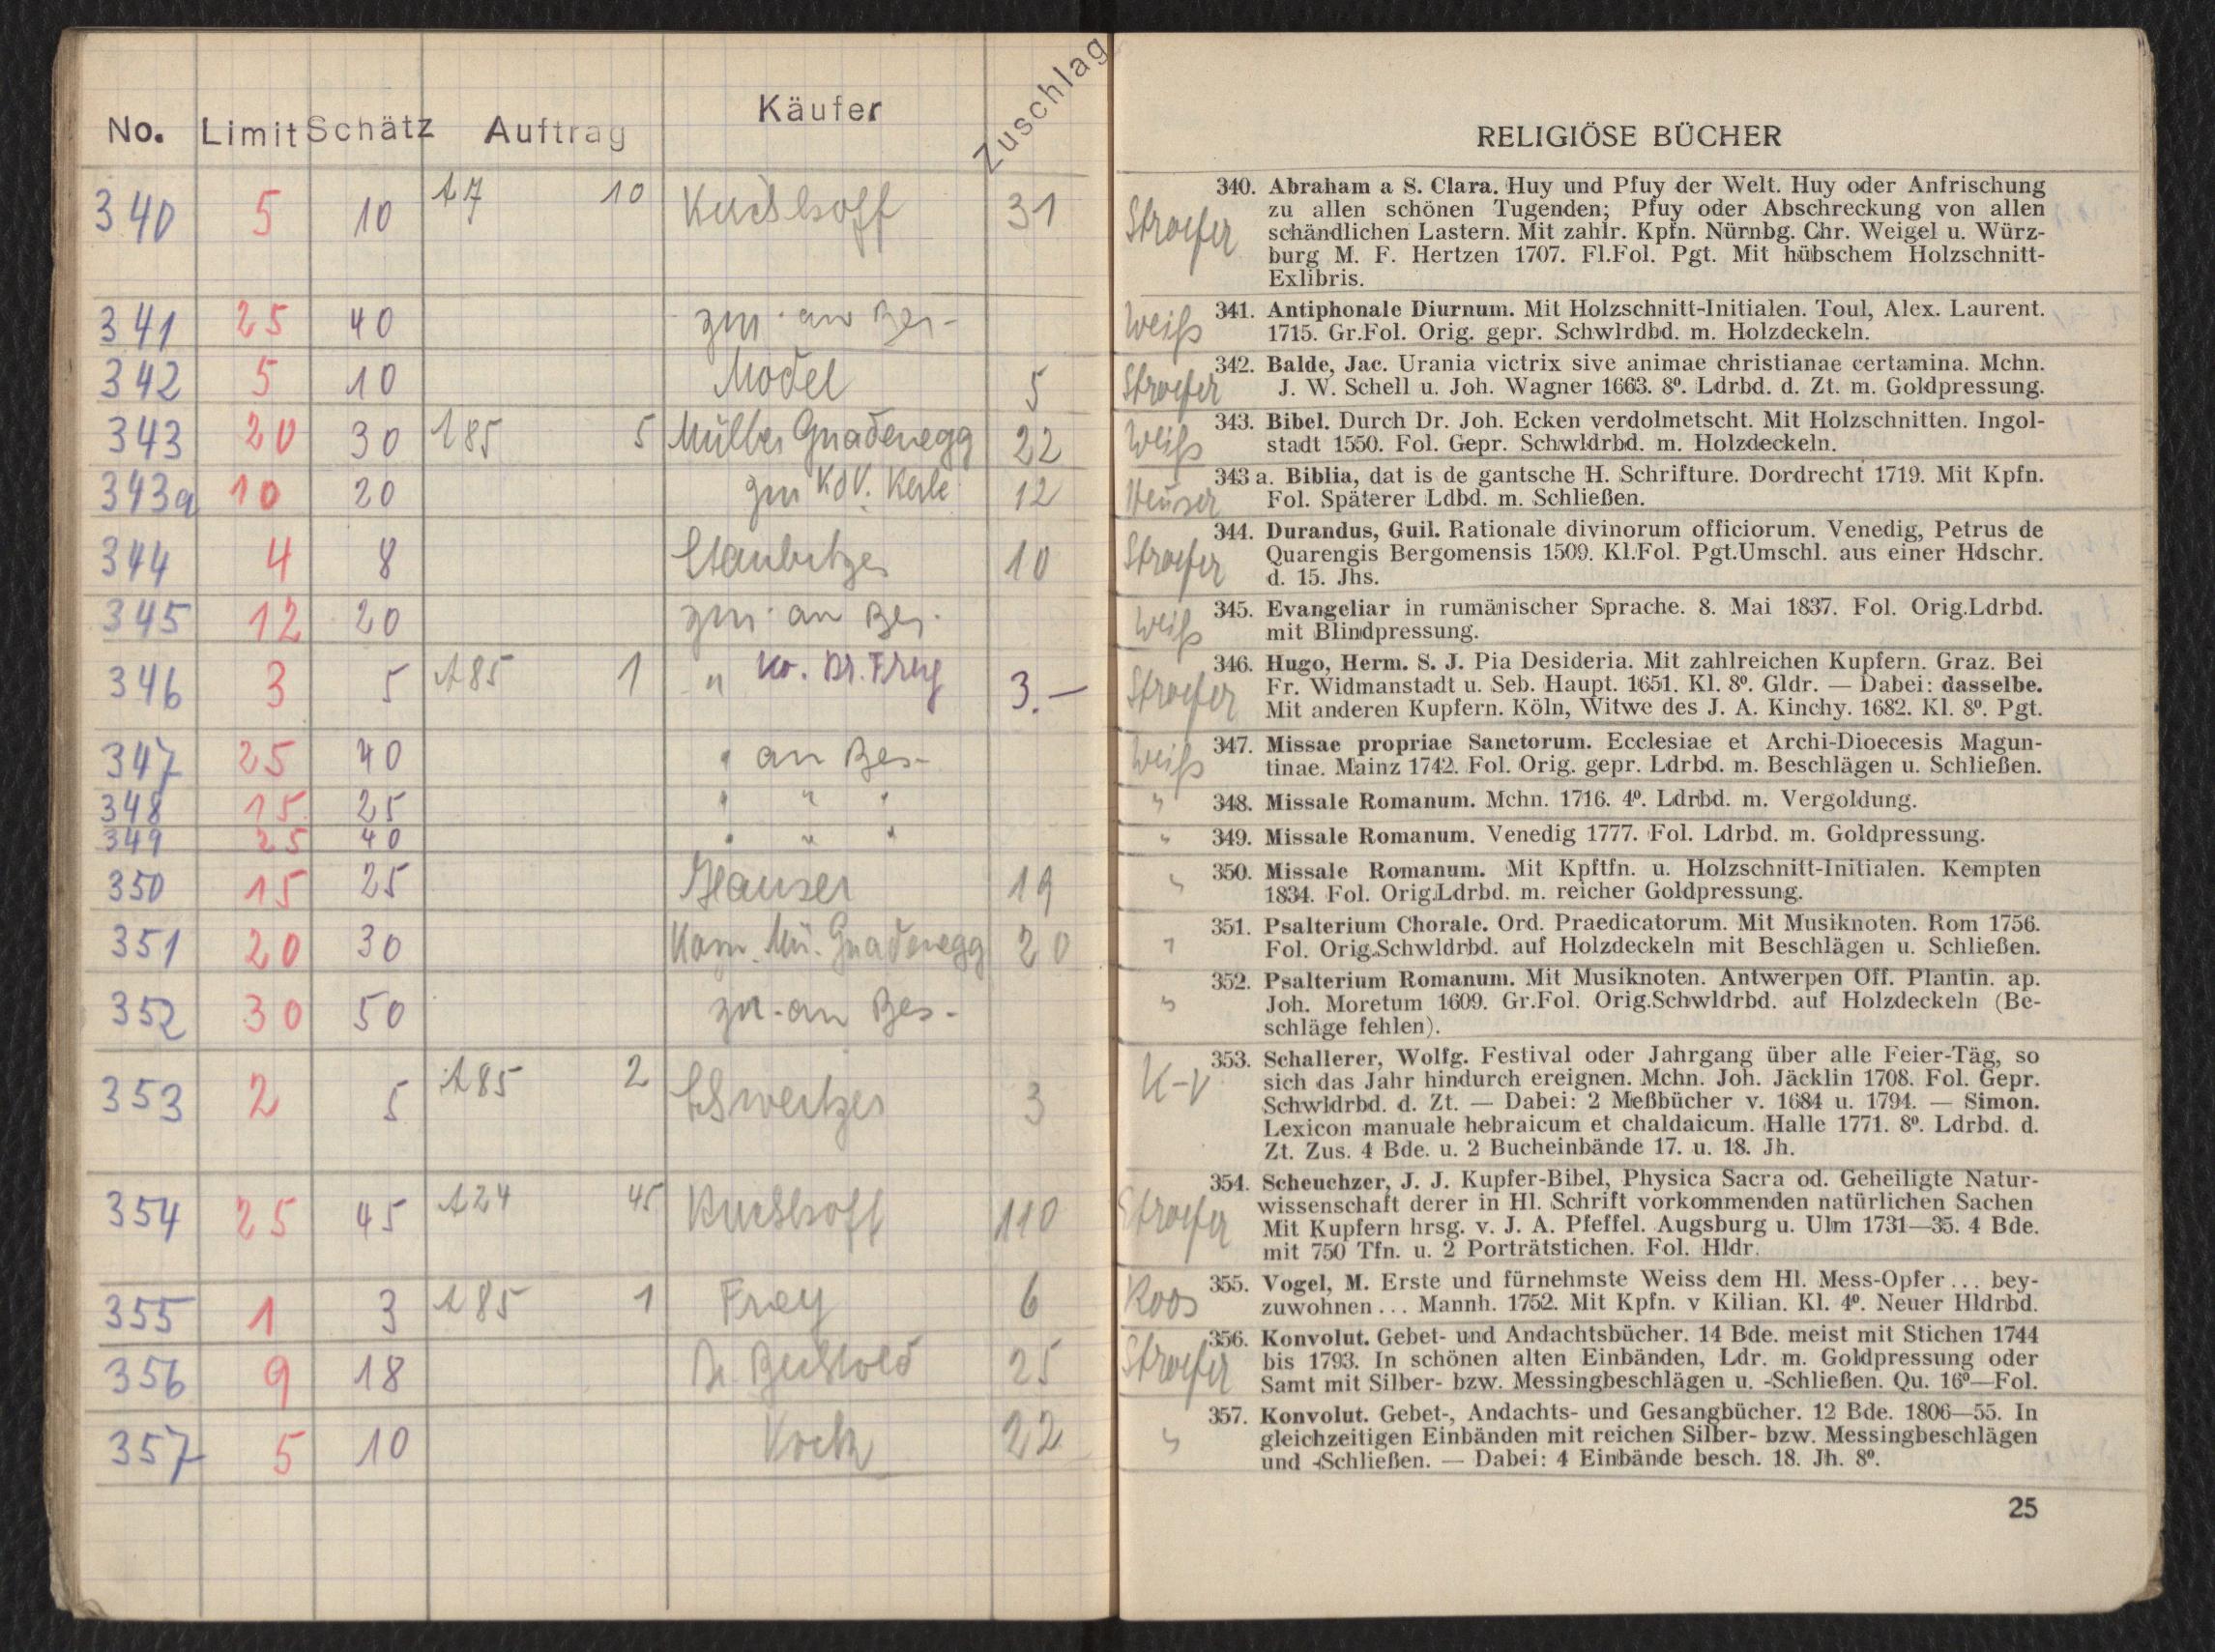 No. Limit Schätz Auftrag Käufer Zuschlag
340 5 10 10 31
341 25 40 an Bes-
342 5 10 Model 5
343 20 30 185 5 Müller Gnadenegg 22
343a 10 20 12
344 4 8 10
345 12 20 an Bes.
346 3 5 185 1 " Dr. Frey 3.—
347 25 40 " an Bes-
348 15 25 " " "
349 25 40 " " "
350 15 25 Hauser 19
351 20 30 Mü. Gnadenegg 20
352 30 50 an Bes-
353 2 5 185 2 3
354 25 45 45 110
355 1 3 185 1 Frey 6
356 9 18 25
357 5 10 Koch 22
RELIGIÖSE BÜCHER
Stroefer
340. Abraham a S. Clara. Huy und Pfuy der Welt. Huy oder Anfrischung
zu allen schönen Tugenden; Pfuy oder Abschreckung von allen
schändlichen Lastern. Mit zahlr. Kpfn. Nürnbg. Chr. Weigel u. Würz-
burg M. F. Hertzen 1707. Fl.Fol. Pgt. Mit hübschem Holzschnitt-
Exlibris.
Weiß
341. Antiphonale Diurnum. Mit Holzschnitt-Initialen. Toul, Alex. Laurent.
1715. Gr.Fol. Orig. gepr. Schwlrdbd. m. Holzdeckeln.
Stroefer
342. Balde, Jac. Urania victrix sive animae christianae certamina. Mchn.
J. W. Schell u. Joh. Wagner 1663. 8⁰. Ldrbd. d. Zt. m. Goldpressung.
Weiß
343. Bibel. Durch Dr. Joh. Ecken verdolmetscht. Mit Holzschnitten. Ingol-
stadt 1550. Fol. Gepr. Schwldrbd. m. Holzdeckeln.
343 a. Biblia, dat is de gantsche H. Schrifture. Dordrecht 1719. Mit Kpfn.
Fol. Späterer Ldbd. m. Schließen.
Stroefer
344. Durandus, Guil. Rationale divinorum officiorum. Venedig, Petrus de
Quarengis Bergomensis 1509. Kl.Fol. Pgt.Umschl. aus einer Hdschr.
d. 15. Jhs.
Weiß
345. Evangeliar in rumänischer Sprache. 8. Mai 1837. Fol. Orig.Ldrbd.
mit Blindpressung.
Stroefer
346. Hugo, Herm. S. J. Pia Desideria. Mit zahlreichen Kupfern. Graz. Bei
Fr. Widmanstadt u. Seb. Haupt. 1651. Kl. 8⁰. Gldr. — Dabei: dasselbe.
Mit anderen Kupfern. Köln, Witwe des J. A. Kinchy. 1682. Kl. 8⁰. Pgt.
Weiß
347. Missae propriae Sanctorum. Ecclesiae et Archi-Dioecesis Magun-
tinae. Mainz 1742. Fol. Orig. gepr. Ldrbd. m. Beschlägen u. Schließen.
" 348. Missale Romanum. Mchn. 1716. 4⁰. Ldrbd. m. Vergoldung.
" 349. Missale Romanum. Venedig 1777. Fol. Ldrbd. m. Goldpressung.
" 350. Missale Romanum. Mit Kpftfn. u. Holzschnitt-Initialen. Kempten
1834. Fol. Orig.Ldrbd. m. reicher Goldpressung.
" 351. Psalterium Chorale. Ord. Praedicatorum. Mit Musiknoten. Rom 1756.
Fol. Orig.Schwldrbd. auf Holzdeckeln mit Beschlägen u. Schließen.
" 352. Psalterium Romanum. Mit Musiknoten. Antwerpen Off. Plantin. ap.
Joh. Moretum 1609. Gr.Fol. Orig.Schwldrbd. auf Holzdeckeln (Be-
schläge fehlen).
K-V
353. Schallerer, Wolfg. Festival oder Jahrgang über alle Feier-Täg, so
sich das Jahr hindurch ereignen. Mchn. Joh. Jäcklin 1708. Fol. Gepr.
Schwldrbd. d. Zt. — Dabei: 2 Meßbücher v. 1684 u. 1794. — Simon.
Lexicon manuale hebraicum et chaldaicum. Halle 1771. 8⁰. Ldrbd. d.
Zt. Zus. 4 Bde. u. 2 Bucheinbände 17. u. 18. Jh.
Stroefer
354. Scheuchzer, J. J. Kupfer-Bibel, Physica Sacra od. Geheiligte Natur-
wissenschaft derer in Hl. Schrift vorkommenden natürlichen Sachen
Mit Kupfern hrsg. v. J. A. Pfeffel. Augsburg u. Ulm 1731—35. 4 Bde.
mit 750 Tfn. u. 2 Porträtstichen. Fol. Hldr.
Roos
355. Vogel, M. Erste und fürnehmste Weiss dem Hl. Mess-Opfer ... bey-
zuwohnen ... Mannh. 1752. Mit Kpfn. v Kilian. Kl. 4⁰. Neuer Hldrbd.
Stroefer
356. Konvolut. Gebet- und Andachtsbücher. 14 Bde. meist mit Stichen 1744
bis 1793. In schönen alten Einbänden, Ldr. m. Goldpressung oder
Samt mit Silber- bzw. Messingbeschlägen u. -Schließen. Qu. 16⁰—Fol.
" 357. Konvolut. Gebet-, Andachts- und Gesangbücher. 12 Bde. 1806—55. In
gleichzeitigen Einbänden mit reichen Silber- bzw. Messingbeschlägen
und -Schließen. — Dabei: 4 Einbände besch. 18. Jh. 8⁰.
25